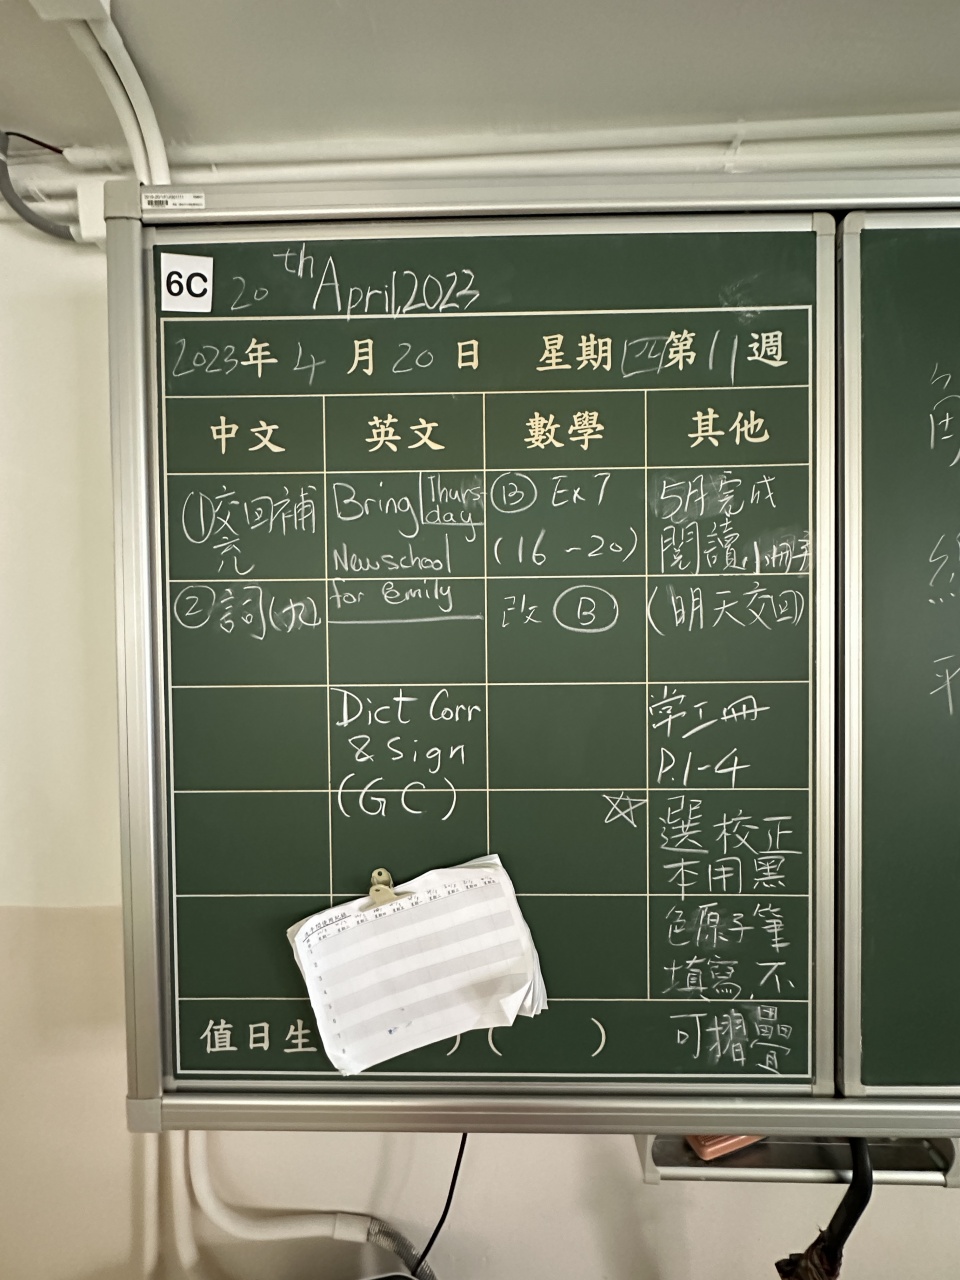 6C
20th April, 2023
2023年4月20日 星期四 第11週
中文 英文 數學 其他
①交回補
充
②詞(九)
Bring Thurs-
day
New school
for Emily
Dict Corr
& Sign
(GC)
Ⓑ Ex 7
(16-20)
改 Ⓑ
5月完成
閱讀小冊子
(明天交回)
常工冊
P.1-4
☆ 選校正
本用黑
色原子筆
填寫,不
可摺疊
值日生 ) ( )